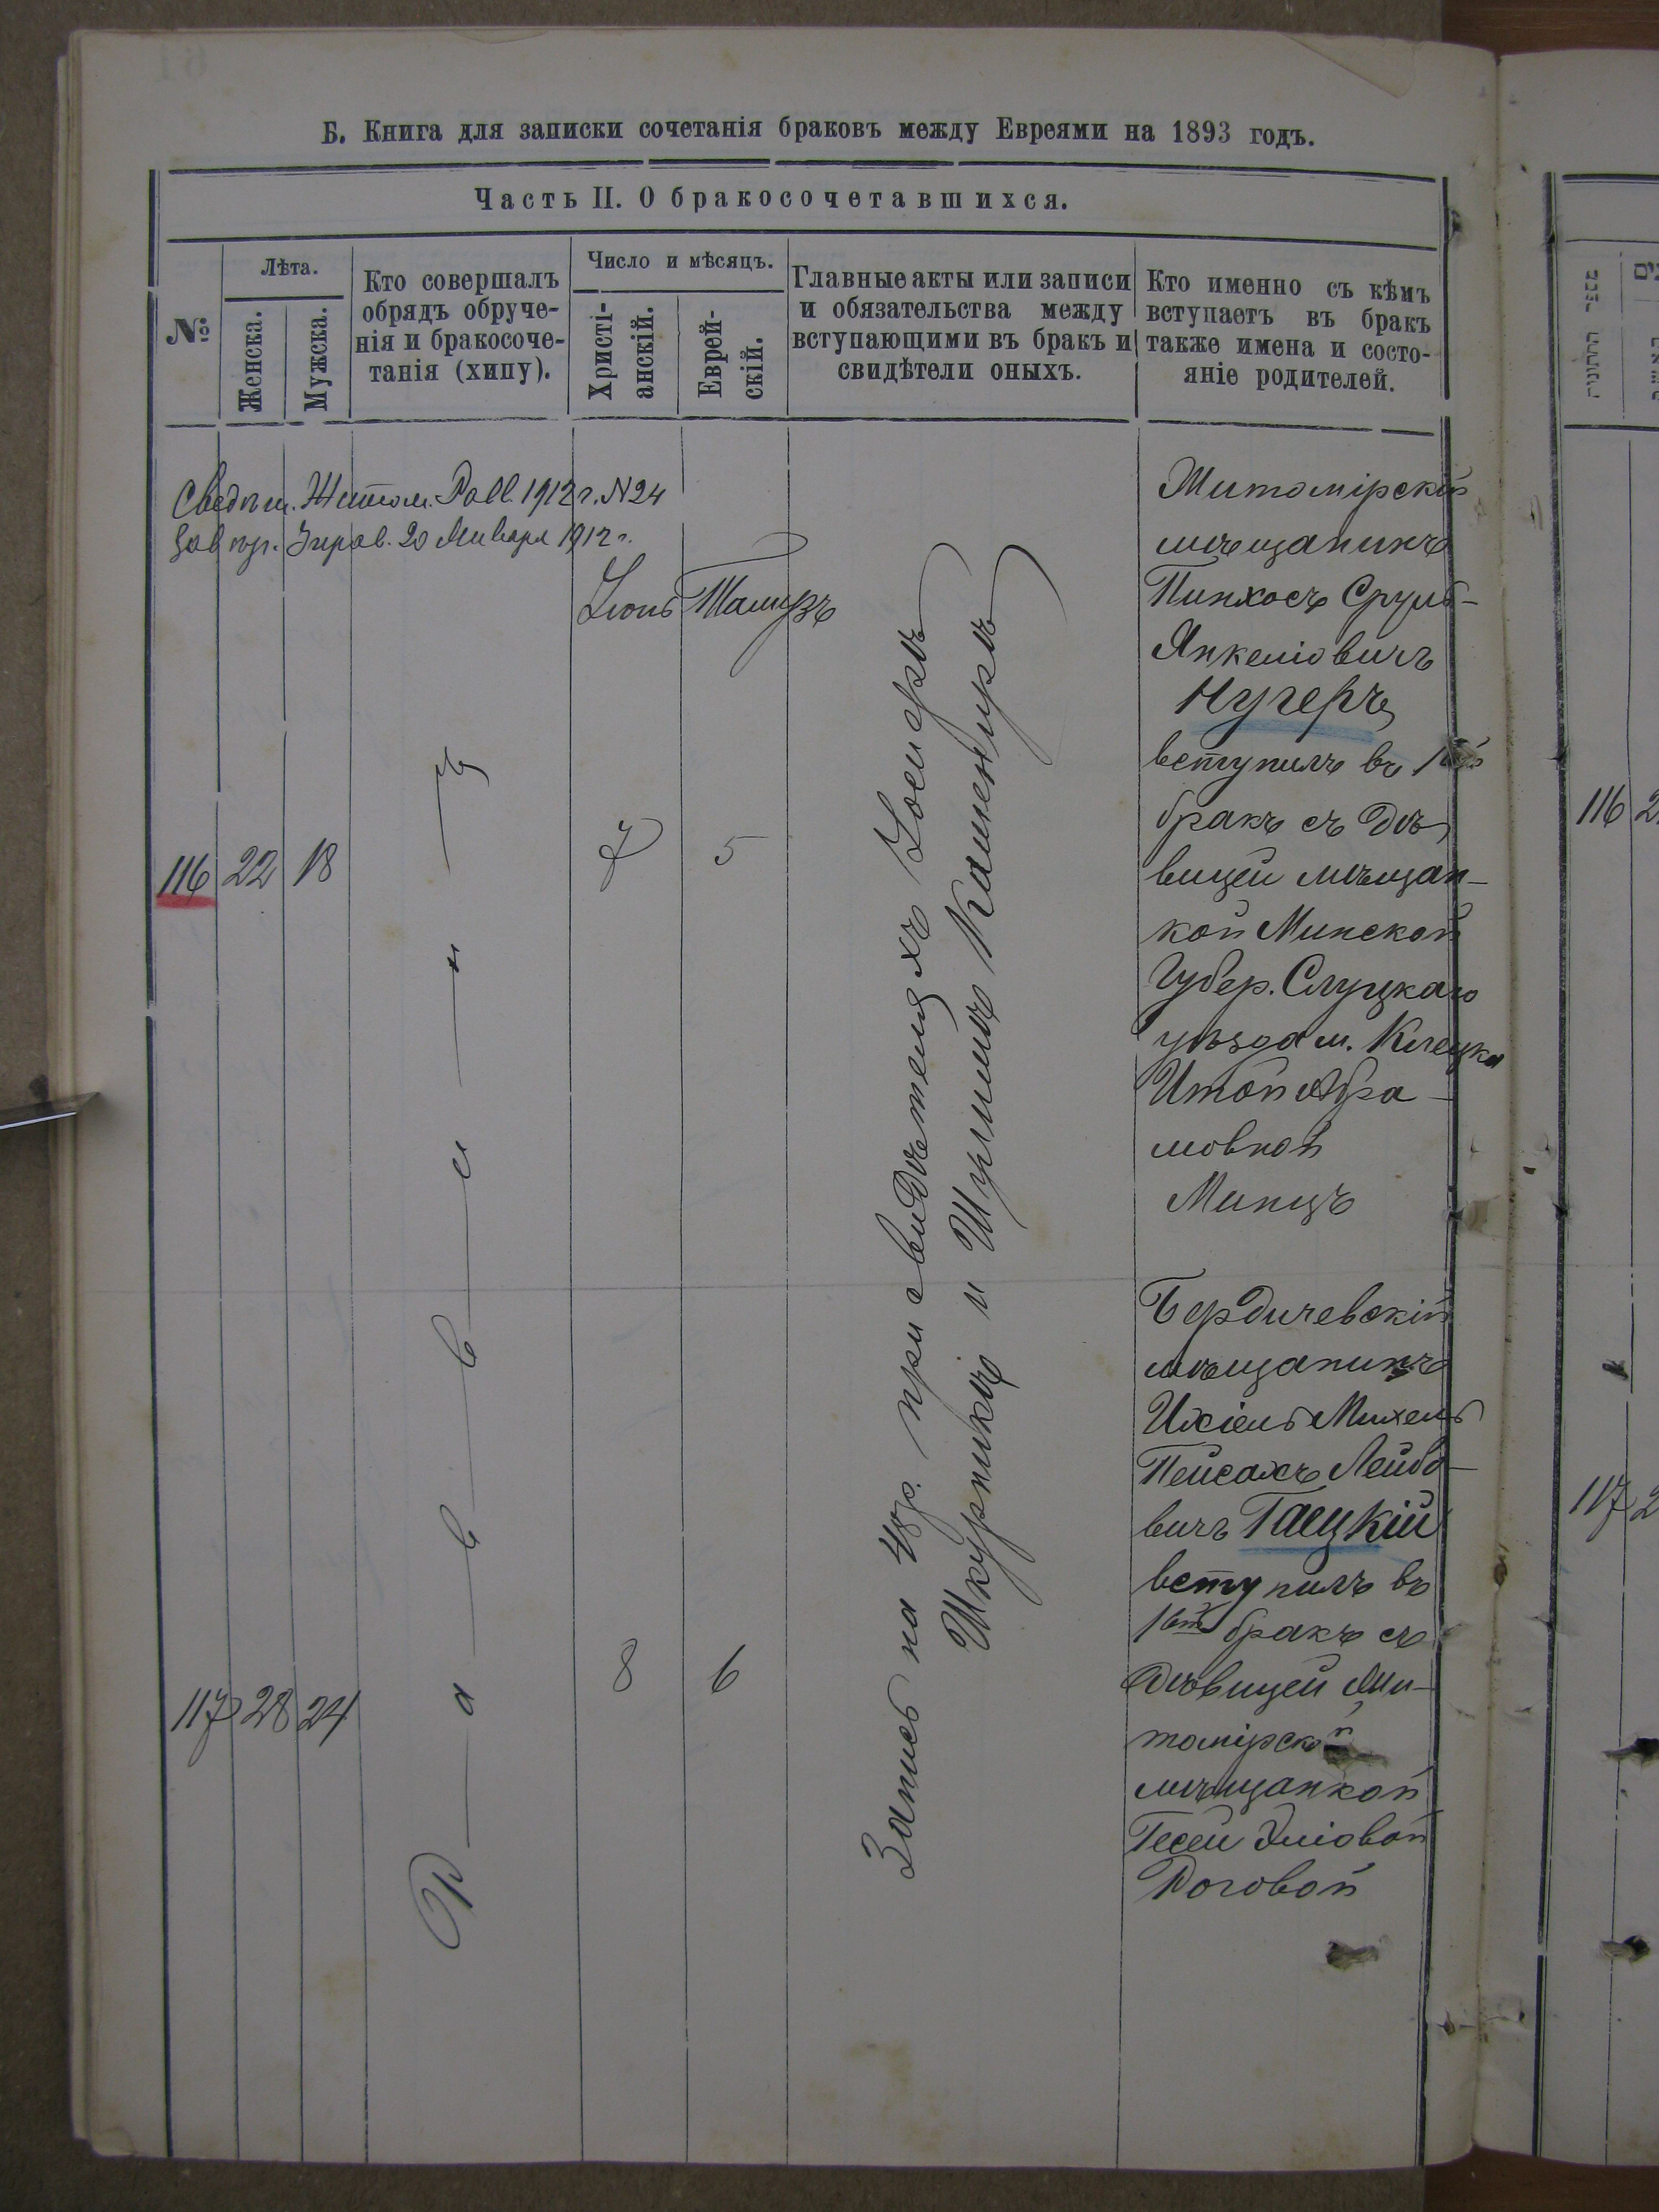 Б. Книга для записки сочетанія браковъ между Евреями на 1893 годъ.
Часть II. О бракосочетавшихся.
№
Лѣта.
Женска.
Мужска.
Кто совершалъ
обрядъ обруче-
нія и бракосоче-
танія (хипу).
Число и мѣсяцъ.
Христі-
анскій.
Еврей-
скій.
Главные акты или записи
и обязательства между
вступающими въ бракъ и
свидѣтели оныхъ.
Кто именно съ кѣмъ
вступаетъ въ бракъ
также имена и состо-
яніе родителей.
Житом. 1912 г. N 24
20 Января 1912 г.
Іюнь Тамузъ
116 22 18
Раввинъ
7 5
Запись на 48 р. при свидѣтеляхъ
Шкурникѣ и Шулимѣ
Житомірскій
мѣщанинъ
Пинхосъ Сруль-
Янкеліовичъ
Нугеръ
вступилъ въ 1ый
бракъ съ дѣ
вицей мѣщан-
кой Минской
Губер. Слуцкаго
уѣзда м. Клецка
Итой Абра-
мовной
Минцъ
117 28 24
8 6
Бердичевскій
мѣщанинъ
Ихіель Михель
Пейсахъ Лейбо-
вичъ Гаецкій
вступилъ въ
1ый бракъ съ
дѣвицей Жи-
томірской
мѣщанкой
Гесей Эліовой
Роговой
116 2
117 2